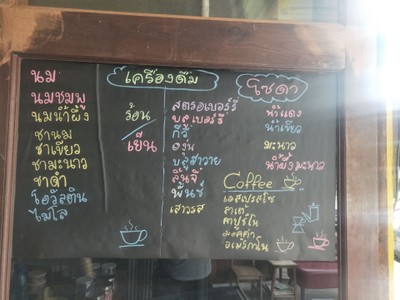 เครื่องดื่ม
นม
นมชมพู
นมน้ำผึ้ง
ชานม
ชาเขียว
ชามะนาว
ชาดำ
โอวัลติน
ไมโล
ร้อน
เย็น
โซดา
สตรอเบอร์รี่
บลูเบอร์รี่
กีวี่
องุ่น
บลูฮาวาย
ลิ้นจี่
พั้นซ์
เสาวรส
น้ำแดง
น้ำเขียว
มะนาว
น้ำผึ้งมะนาว
Coffee
เอสเปรสโซ
ลาเต้
คาปูชิโน
มอคค่า
อเมริกาโน